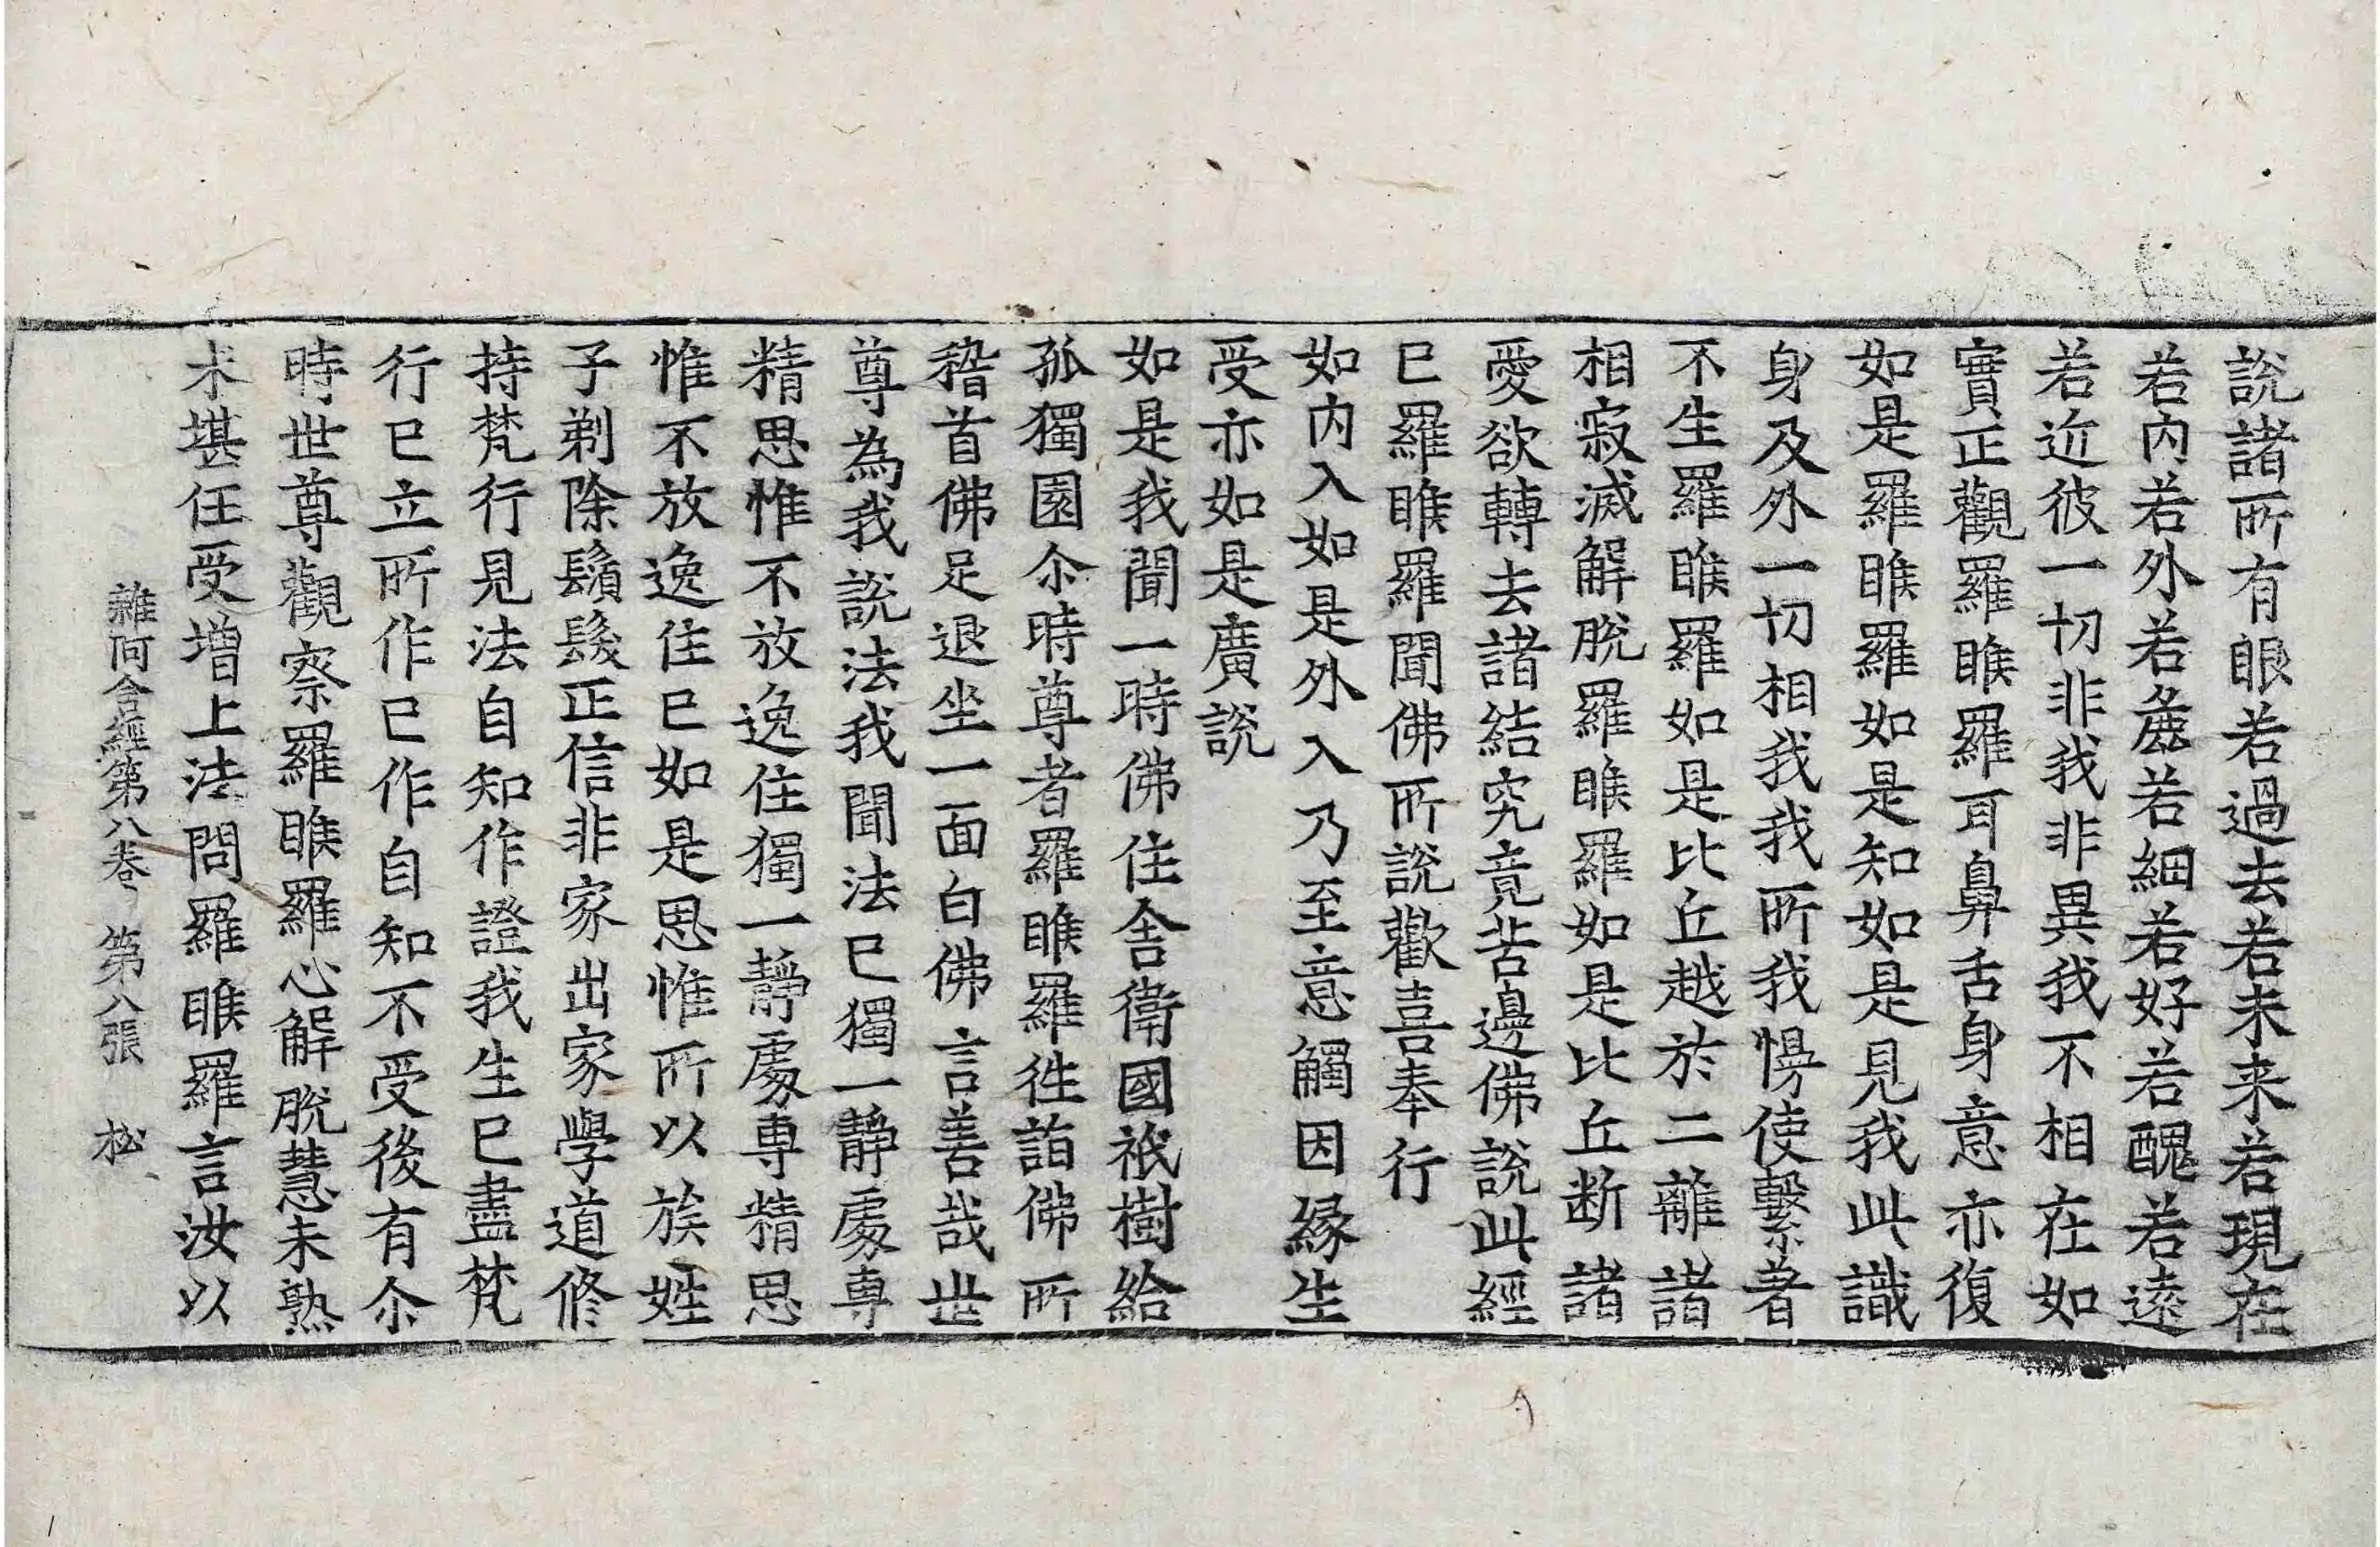 說諸所有眼若過去若未来若現在
若內若外若麁若細若好若醜若遠
若近彼一切非我非異我不相在如
實正觀羅睺羅耳鼻舌身意亦復
如是羅睺羅如是知如是見我此識
身及外一切相我我所我慢使繫著
不生羅睺羅如是比丘越於二離諸
相寂滅解脫羅睺羅如是比丘断諸
愛欲轉去諸結究竟苦邊佛說此經
已羅睺羅聞佛所說歡喜奉行
如內入如是外入乃至意觸因緣生
受亦如是廣說
如是我聞一時佛住舍衛國祇樹給
孤獨園尒時尊者羅睺羅往詣佛所
稽首佛足退坐一面白佛言善哉世
尊為我說法我聞法已獨一靜處專
精思惟不放逸住獨一靜處專精思
惟不放逸住已如是思惟所以族姓
子剃除鬚髮正信非家出家學道修
持梵行見法自知作證我生已盡梵
行已立所作已作自知不受後有尒
時世尊觀察羅睺羅心解脫慧未熟
未堪任受增上法問羅睺羅言汝以
雜阿含經第八卷 第八張 松